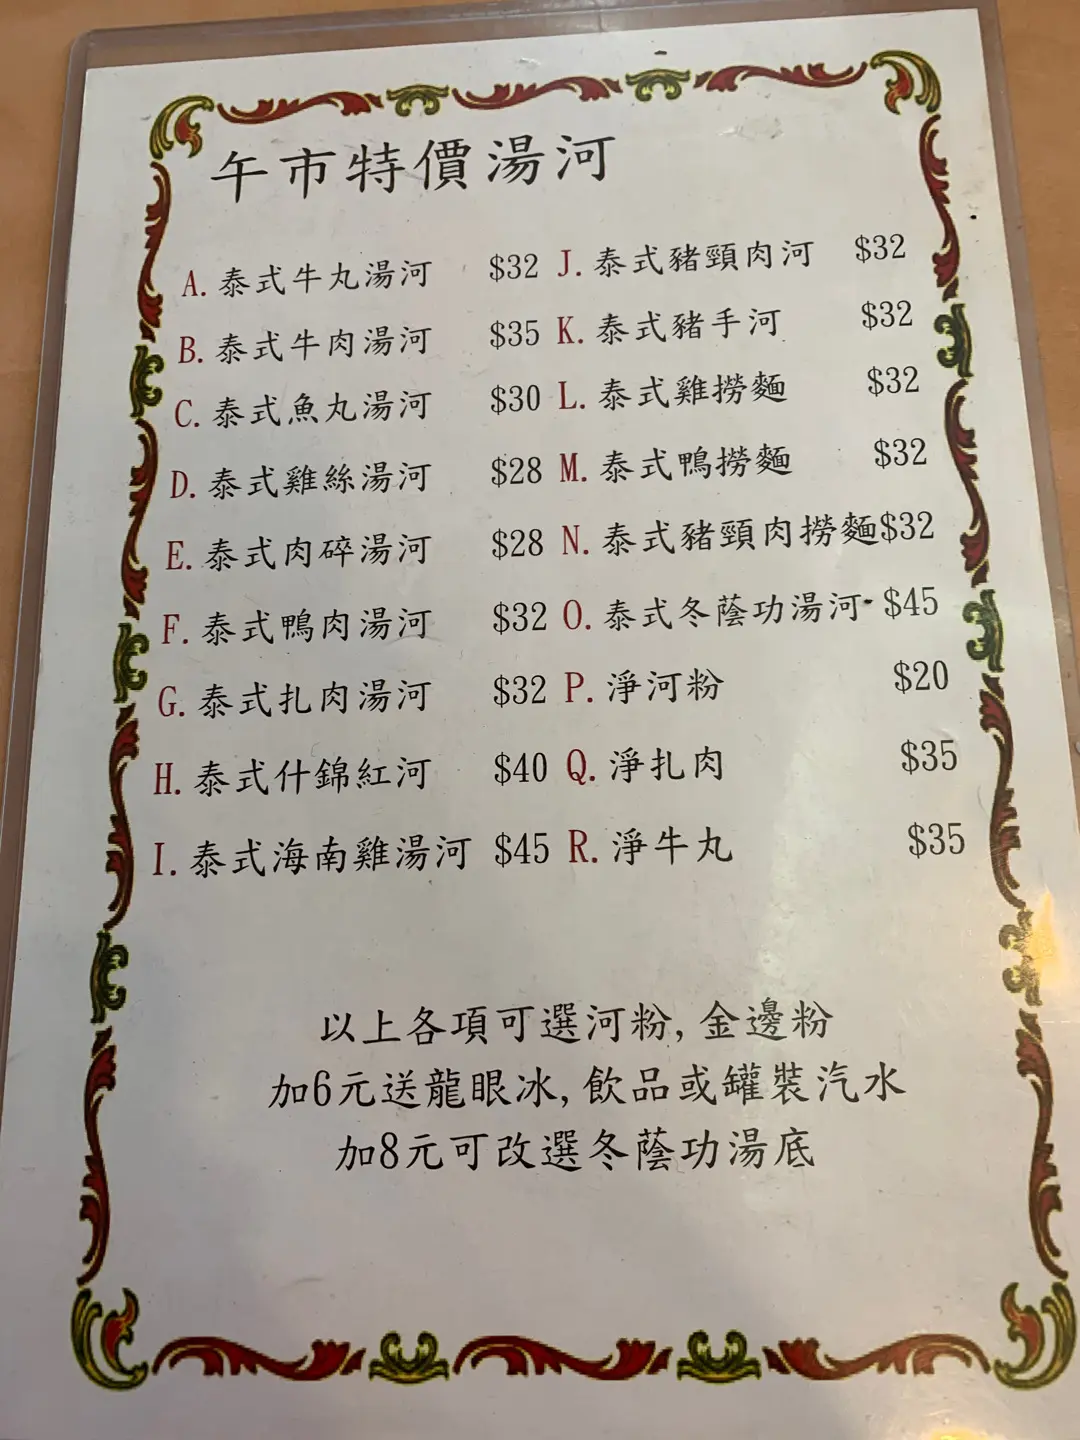 午市特價湯河
A. 泰式牛丸湯河 $32
B. 泰式牛肉湯河 $35
C. 泰式魚丸湯河 $30
D. 泰式雞絲湯河 $28
E. 泰式肉碎湯河 $28
F. 泰式鴨肉湯河 $32
G. 泰式扎肉湯河 $32
H. 泰式什錦紅河 $40
I. 泰式海南雞湯河 $45
J. 泰式豬頸肉河 $32
K. 泰式豬手河 $32
L. 泰式雞撈麵 $32
M. 泰式鴨撈麵 $32
N. 泰式豬頸肉撈麵$32
O. 泰式冬蔭功湯河 $45
P. 淨河粉 $20
Q. 淨扎肉 $35
R. 淨牛丸 $35
以上各項可選河粉, 金邊粉
加6元送龍眼冰, 飲品或罐裝汽水
加8元可改選冬蔭功湯底